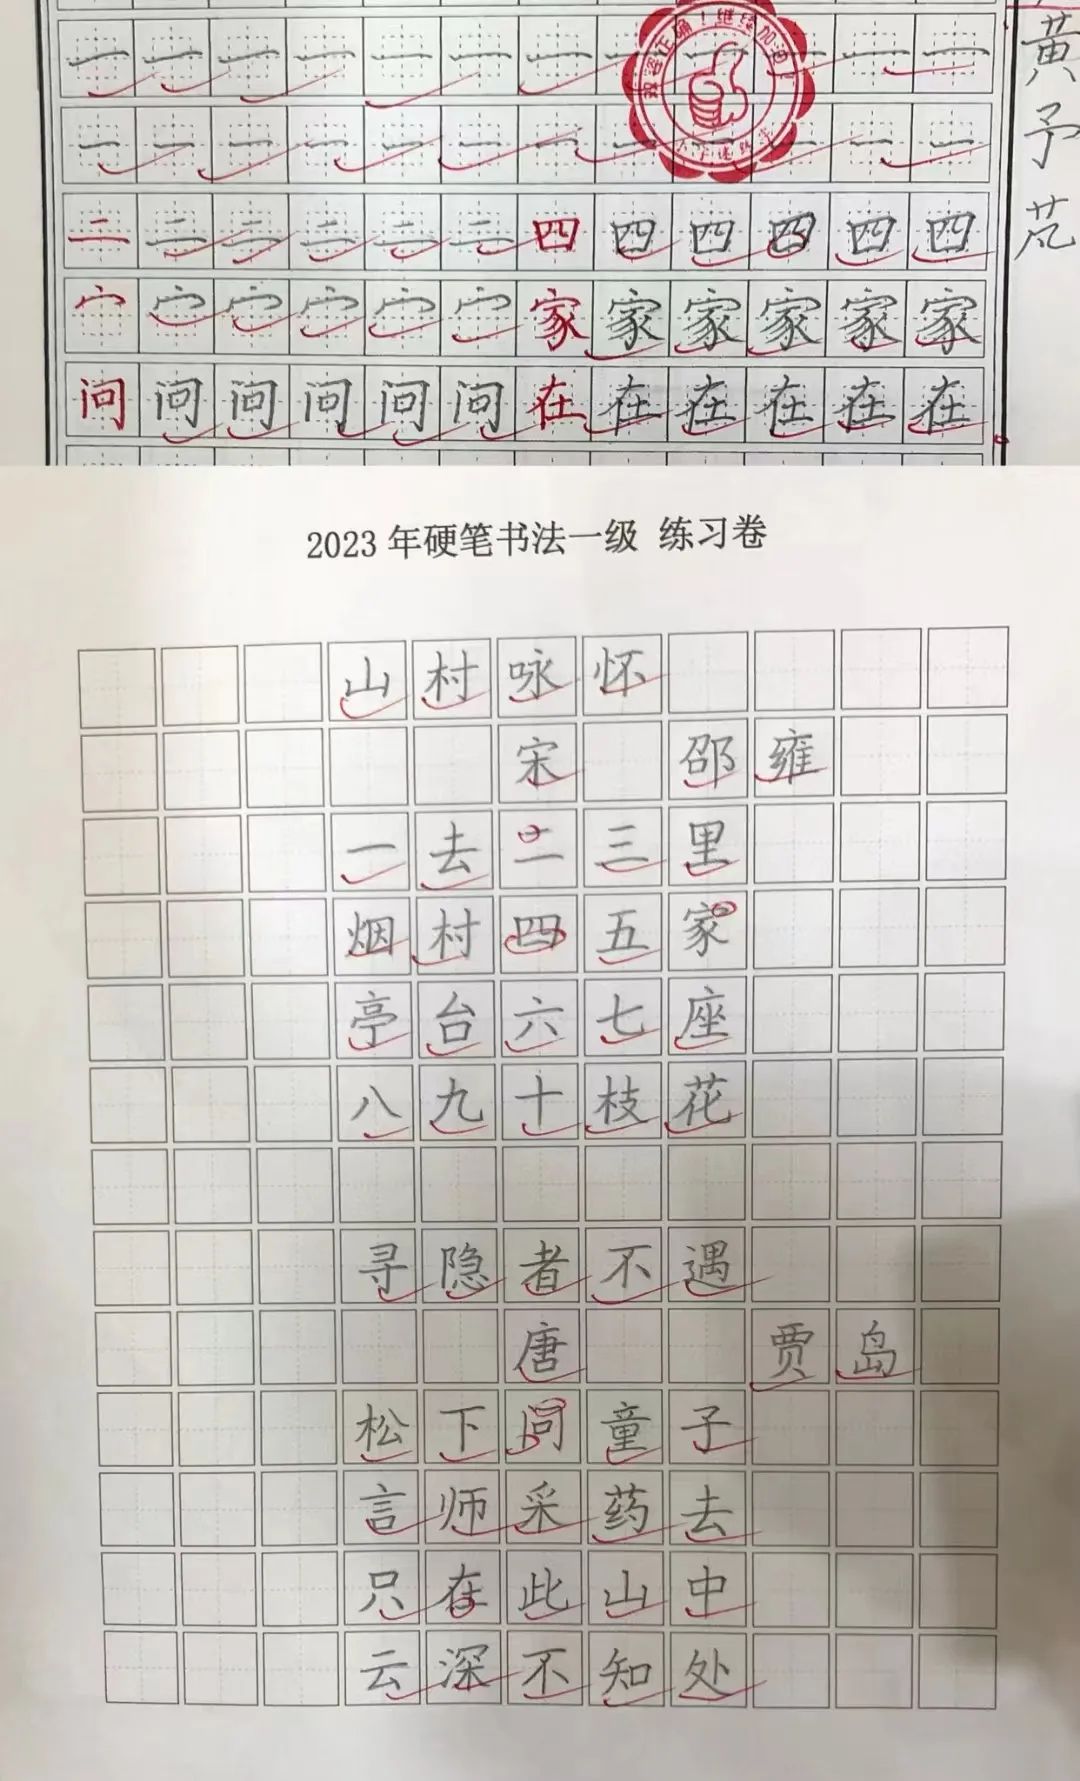 一一一一一一一一一一一一
一一一一一一一一一一一一
二二二二二二四四四四四四
宀宀宀宀宀宀家家家家家家
问问问问问问在在在在在在
正确！继续加油
黄予芃
2023年硬笔书法一级 练习卷
山村咏怀
宋 邵雍
一去二三里
烟村四五家
亭台六七座
八九十枝花
寻隐者不遇
唐 贾岛
松下问童子
言师采药去
只在此山中
云深不知处